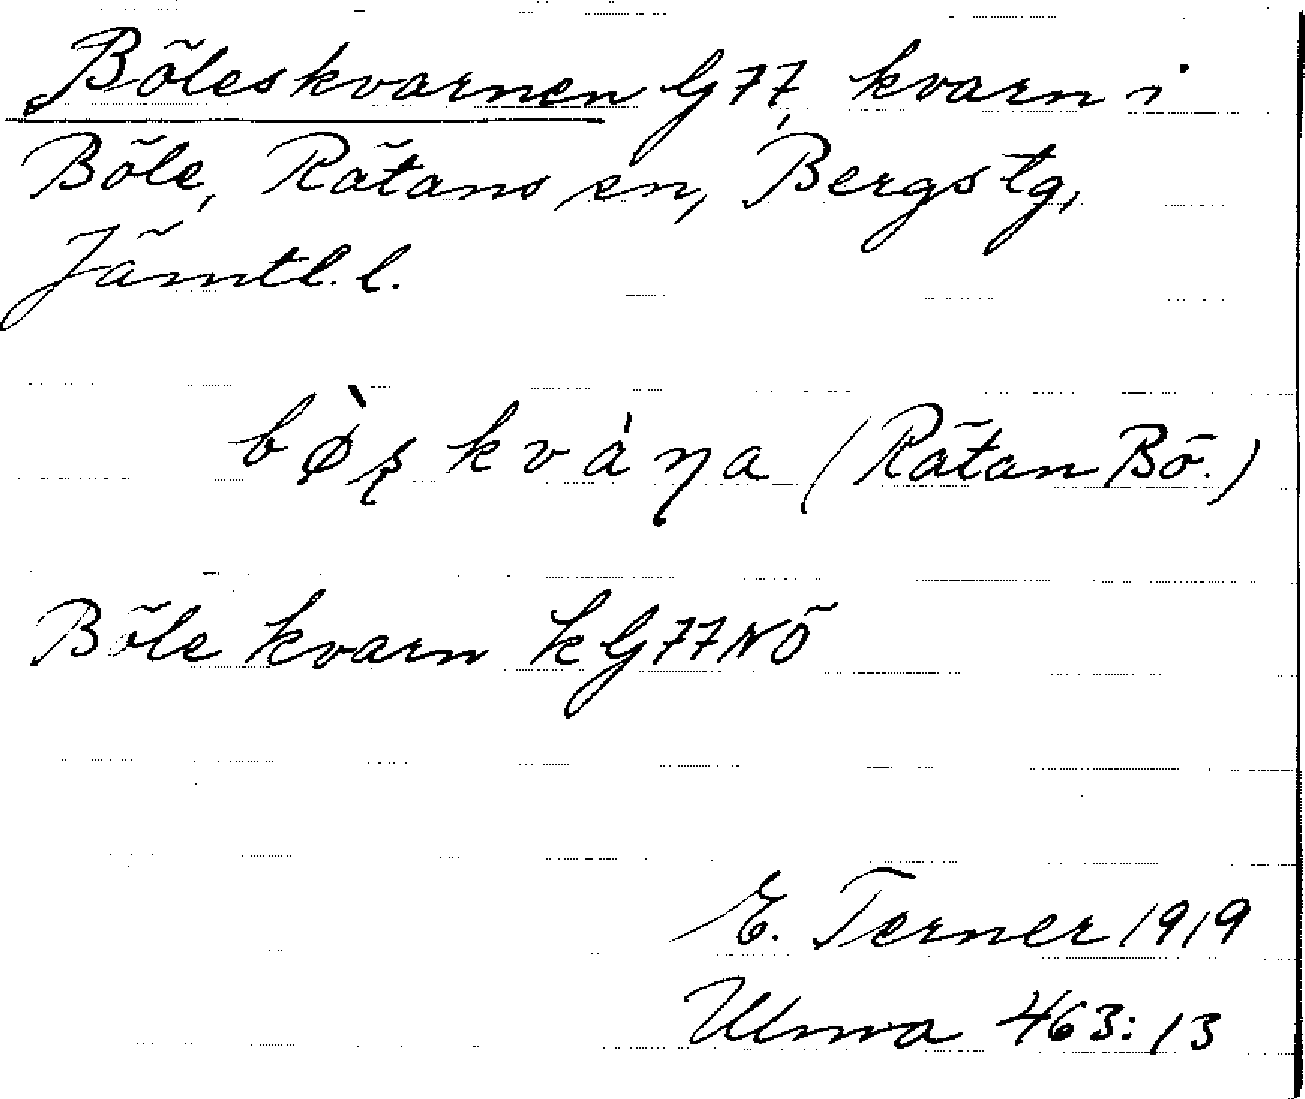 Böleskvarnen G77, kvarn i
Böle, Rätans sn, Bergs tg,
Jämtl. l.
bø̀ʂkváɳa (Rätan Bö.)
Böle kvarn kG77NÖ
E. Terner 1919
Ulma 463:13